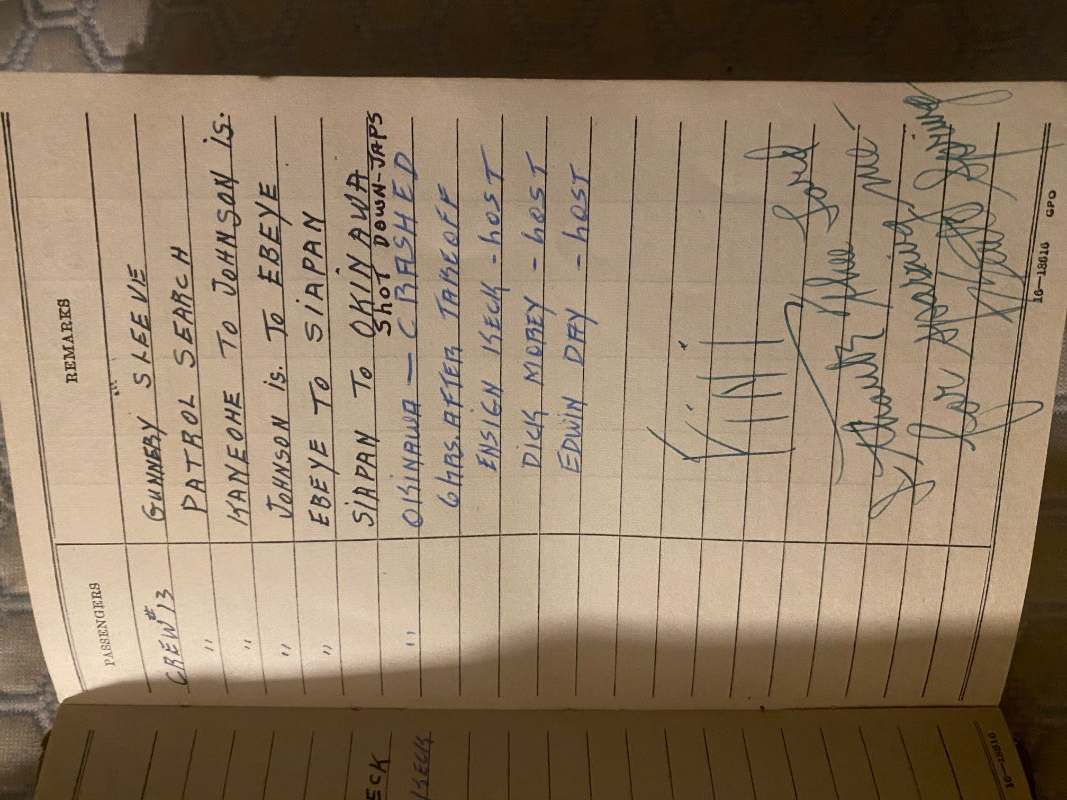 PASSENGERS REMARKS
CREW #13 GUNNERY SLEEVE
" PATROL SEARCH
" KANEOHE TO JOHNSON IS.
" JOHNSON is. TO EBEYE
" EBEYE TO SIAPAN
SIAPAN TO OKINAWA
Shot DOWN-JAPS
" OKINAWA — CRASHED
6HRS. AFTER TAKEOFF
ENSIGN KECK - LOST
DICK MOREY - LOST
EDWIN DAY - LOST
FINI
I Thank Thee Lord
for sparing me
16—18616 GPO
ECK
KECK
16—18616